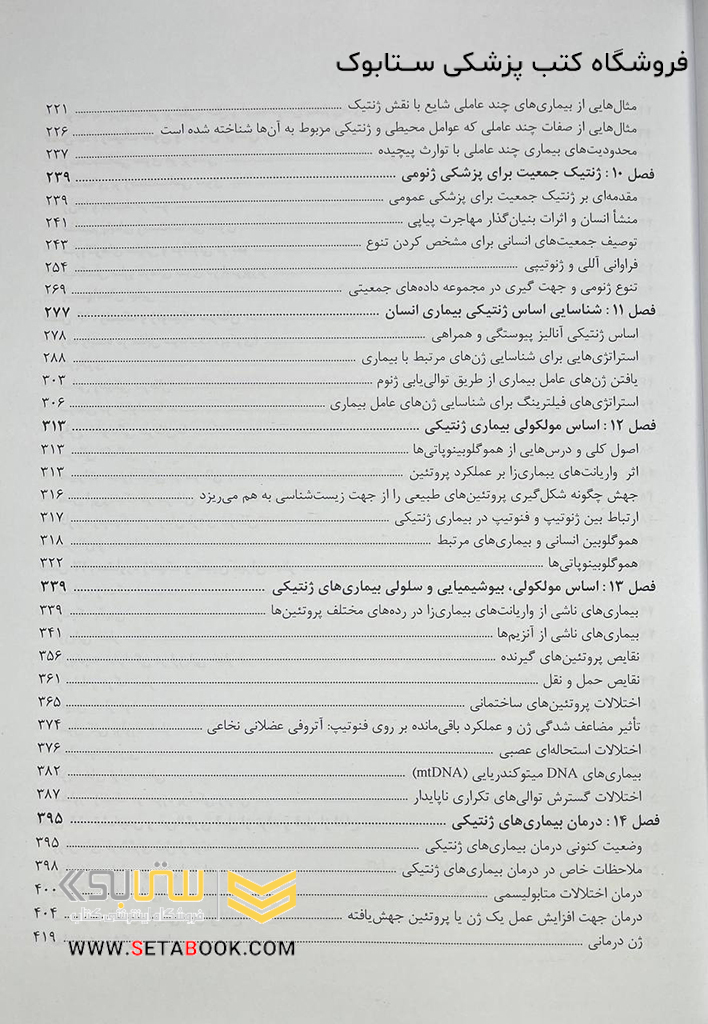 فروشگاه کتب پزشکی ستابوک
مثال‌هایی از بیماری‌های چند عاملی شایع با نقش ژنتیک ۲۲۱
مثال‌هایی از صفات چند عاملی که عوامل محیطی و ژنتیکی مربوط به آن‌ها شناخته شده است ۲۲۶
محدودیت‌های بیماری چند عاملی با توارث پیچیده ۲۳۷
فصل ۱۰: ژنتیک جمعیت برای پزشکی ژنومی ۲۳۹
مقدمه‌ای بر ژنتیک جمعیت برای پزشکی عمومی ۲۳۹
منشأ انسان و اثرات بنیان‌گذار مهاجرت پیاپی ۲۴۱
توصیف جمعیت‌های انسانی برای مشخص کردن تنوع ۲۴۳
فراوانی آللی و ژنوتیپی ۲۵۴
تنوع ژنومی و جهت گیری در مجموعه داده‌های جمعیتی ۲۶۹
فصل ۱۱: شناسایی اساس ژنتیکی بیماری انسان ۲۷۷
اساس ژنتیکی آنالیز پیوستگی و همراهی ۲۷۸
استراتژی‌هایی برای شناسایی ژن‌های مرتبط با بیماری ۲۸۸
یافتن ژن‌های عامل بیماری از طریق توالی‌یابی ژنوم ۳۰۳
استراتژی‌های فیلترینگ برای شناسایی ژن‌های عامل بیماری ۳۰۶
فصل ۱۲: اساس مولکولی بیماری ژنتیکی ۳۱۳
اصول کلی و درس‌هایی از هموگلوبینوپاتی‌ها ۳۱۳
اثر واریانت‌های بیماری‌زا بر عملکرد پروتئین ۳۱۳
جهش چگونه شکل‌گیری پروتئین‌های طبیعی را از جهت زیست‌شناسی به هم می‌ریزد ۳۱۶
ارتباط بین ژنوتیپ و فنوتیپ در بیماری ژنتیکی ۳۱۷
هموگلوبین انسانی و بیماری‌های مرتبط ۳۱۸
هموگلوبینوپاتی‌ها ۳۲۲
فصل ۱۳: اساس مولکولی، بیوشیمیایی و سلولی بیماری‌های ژنتیکی ۳۳۹
بیماری‌های ناشی از واریانت‌های بیماری‌زا در رده‌های مختلف پروتئین‌ها ۳۳۹
بیماری‌های ناشی از آنزیم‌ها ۳۴۱
نقایص پروتئین‌های گیرنده ۳۵۶
نقایص حمل و نقل ۳۶۱
اختلالات پروتئین‌های ساختمانی ۳۶۵
تأثیر مضاعف شدگی ژن و عملکرد باقی‌مانده بر روی فنوتیپ: آتروفی عضلانی نخاعی ۳۷۴
اختلالات استحاله‌ای عصبی ۳۷۶
بیماری‌های DNA میتوکندریایی (mtDNA) ۳۸۲
اختلالات گسترش توالی‌های تکراری ناپایدار ۳۸۷
فصل ۱۴: درمان بیماری‌های ژنتیکی ۳۹۵
وضعیت کنونی درمان بیماری‌های ژنتیکی ۳۹۵
ملاحظات خاص در درمان بیماری‌های ژنتیکی ۳۹۸
درمان اختلالات متابولیسمی ۴۰۰
درمان جهت افزایش عمل یک ژن یا پروتئین جهش‌یافته ۴۰۴
ژن درمانی ۴۱۹
ستابوک
فروشگاه اینترنتی کتاب
WWW.SETABOOK.COM